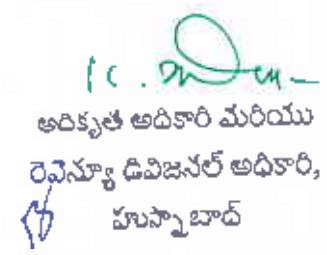 అదికృత అదికారి మరియు
రెవెన్యూ డివిజనల్ అధికారి,
హుస్నాబాద్